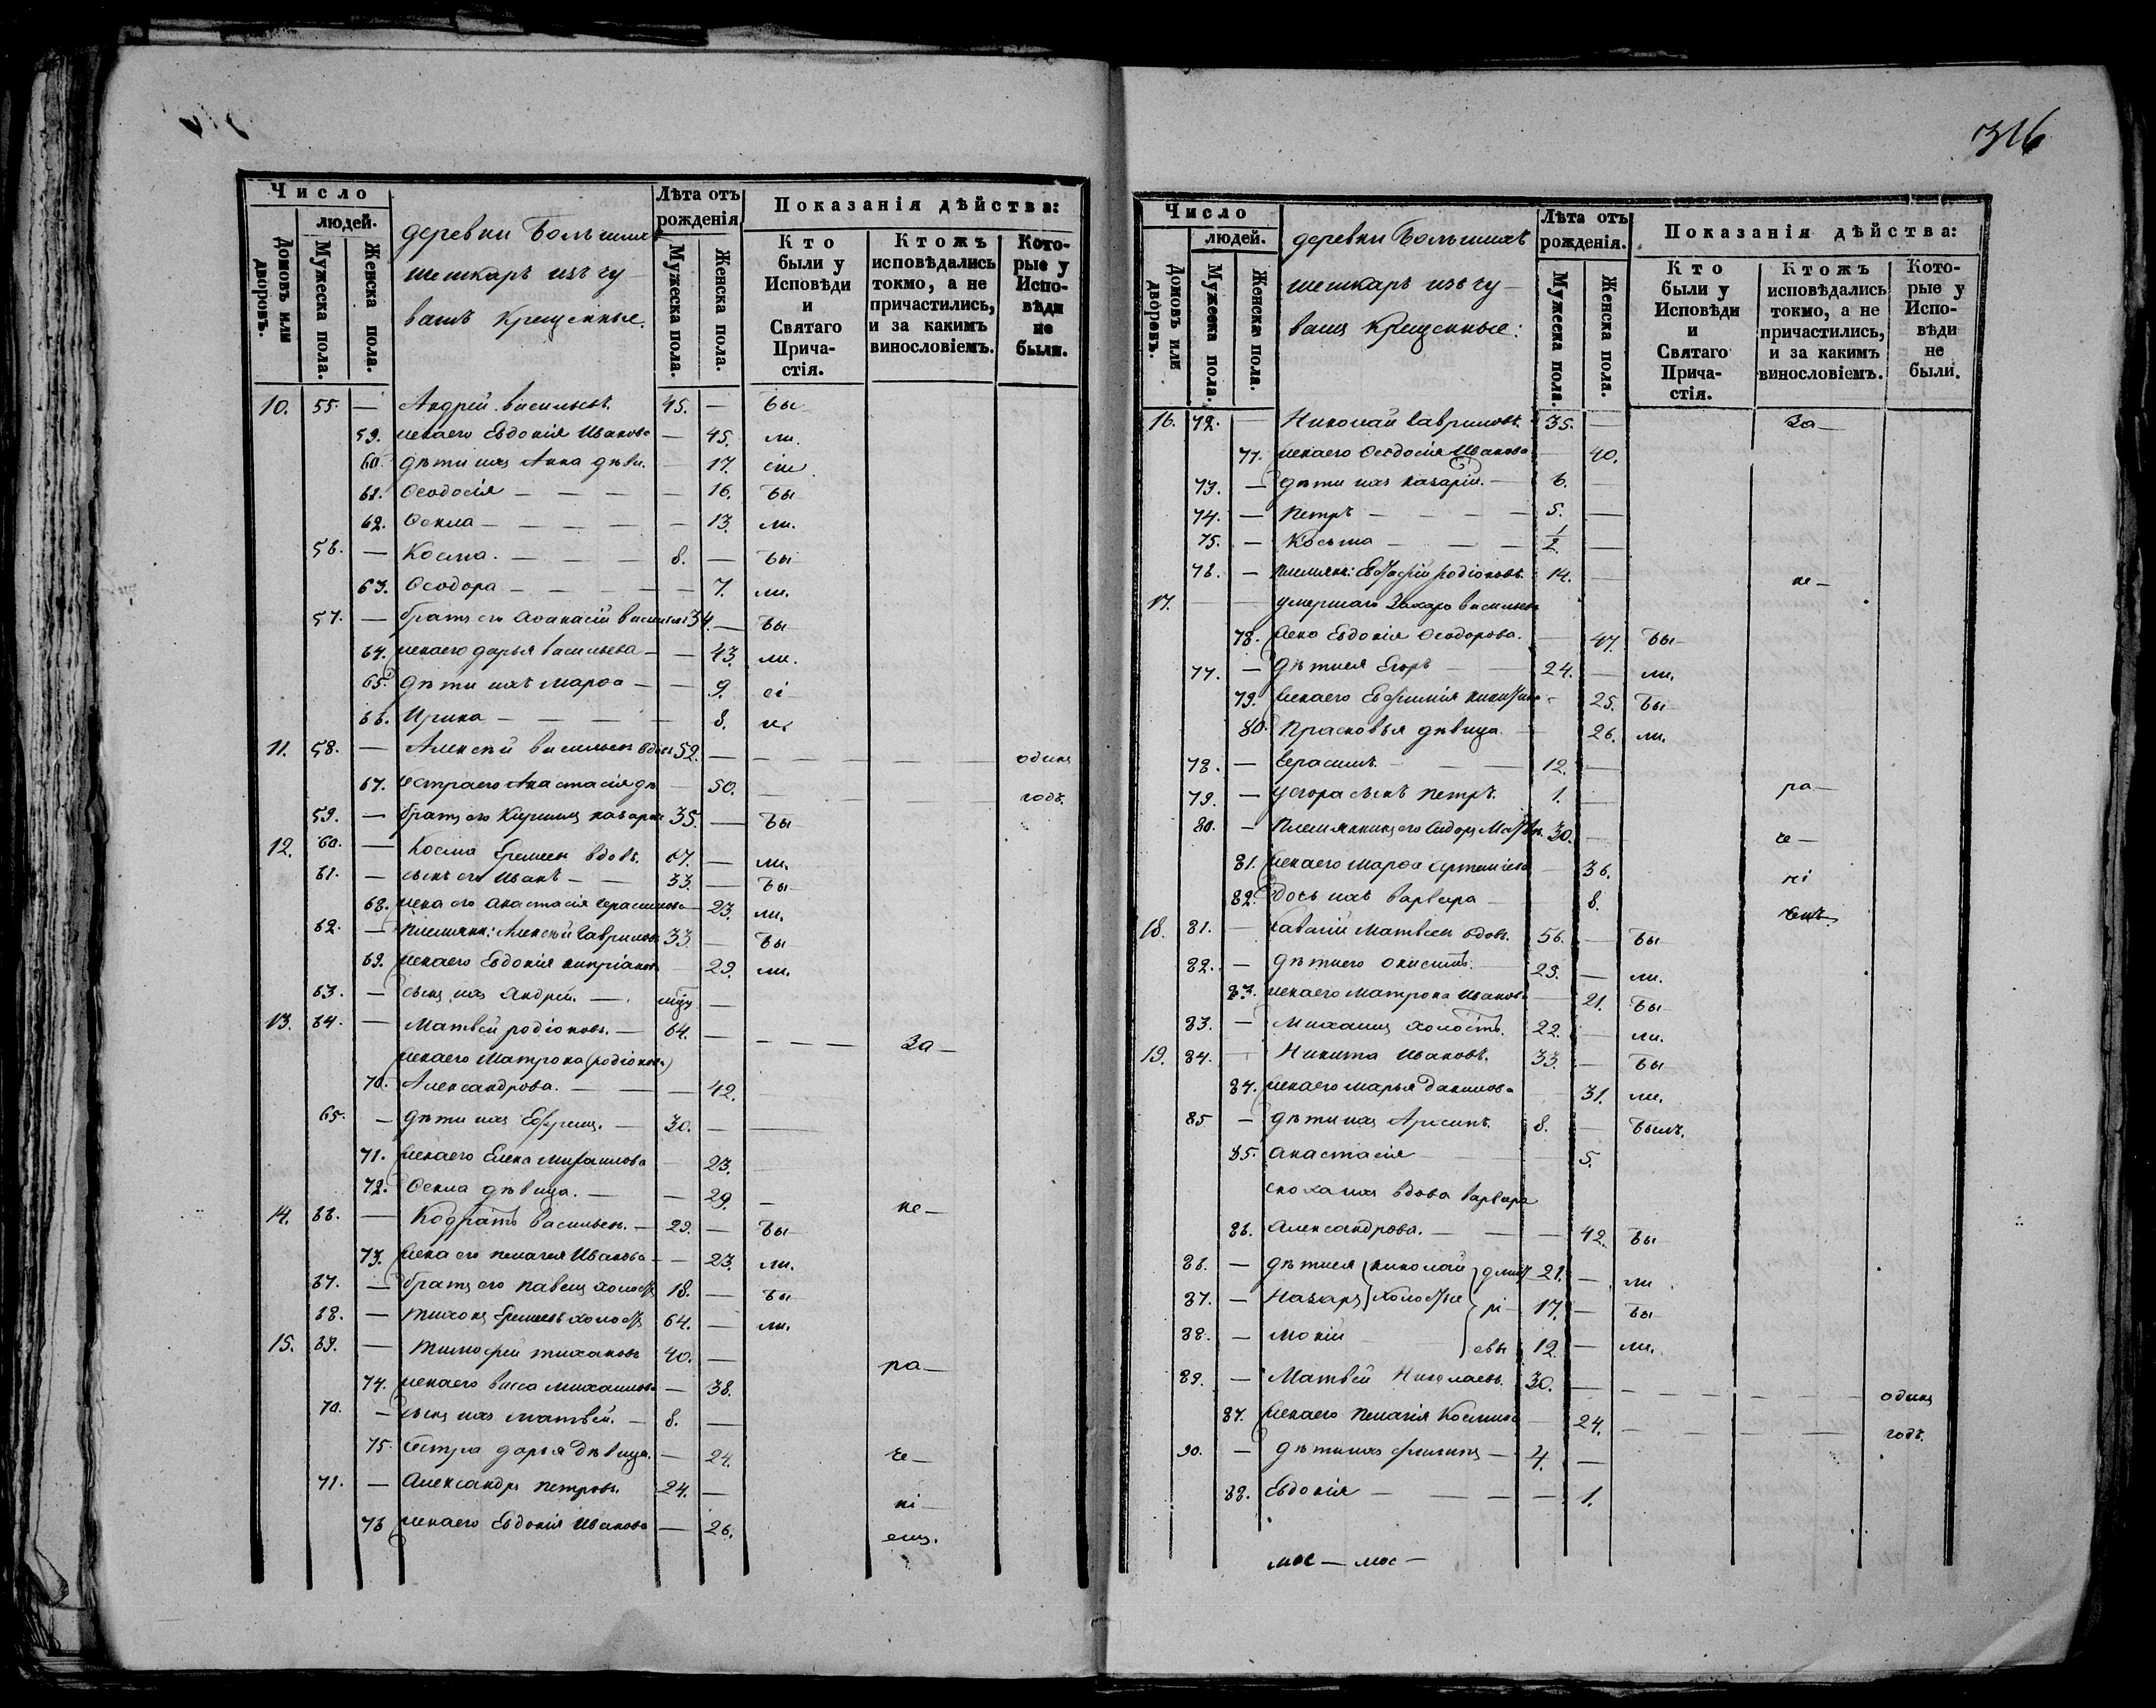 316
Число
людей.
Домовъ или дворовъ.
Мужеска пола.
Женска пола.
деревни Большихъ
шешкаръ изъ чу-
вашъ крещенные.
Лѣта отъ рожденія
Мужеска пола.
Женска пола.
Показанія дѣйства:
Кто были у Исповѣди и Святаго Прича-стія.
Ктожъ исповѣдались токмо, а не причастились, и за какимъ винословіемъ.
Кото-рые у Испо-вѣди не были.
10. 55. — Андрей Васильевъ. 45. — бы
59. жена его Евдокія Иванова — 45. ли.
60. дѣти ихъ Анна дѣви. — 17. сіи
61. Ѳеодосія — — — — 16. бы
62. Ѳекла — — — — — 13. ли.
56. — Косма. — — — 8. — бы
63. Ѳеодора — — — — — 7. ли.
57. — братъ его Аѳанасій Васильев 34. — бы
64. жена его дарья Васильева — — 43. ли.
65. дѣти ихъ Марѳа — — 9. сі
66. Ирина — — — — — 8.
11. 58. — Алексѣй Васильев вдов 52. — — — — — — одинъ
67. Сестра его Анастасія дѣ — 50. — — — годъ.
59. — братъ его Кириллъ 35. — бы
12. 60. — Косма Еремеев вдовъ. 67. — ли.
61. — сынъ его Иванъ — — 33. — бы
68. жена его Анастасія Герасимова — 23. ли.
62. — племянн: Алексѣй Гавриловъ 33. — бы
69. жена его Евдокія Кипріанов — 29. ли.
63. — сынъ ихъ Андрей. — —
13. 64. — Матвѣй родіоновъ. — 64. — — — — — За —
жена его Матрона (родіонова)
70. Александрова. — — — 42.
65. — дѣти ихъ Ефремъ. — 30. — ——
71. жена его Елена Михаилова — 23.
72. Ѳекла дѣвица. — — 29. — не —
14. 66. — Кодратъ Васильев. — 29. — бы
73. жена его Пелагея Иванова — — 23. ли.
67. — братъ его Павелъ холост 18. — бы
68. — Тихонъ Еремеевъ холост 64. — ли.
15. 69. — Тимофей Тихоновъ 40. — ра —
74. жена его Васса Михаилов — 38.
70. — сынъ ихъ Матвѣй. — 8. —
75. Сестра дарья Дѣвица. — 24. че —
71. — Александръ Петровъ. 24. — ні —
76 жена его Евдокія Иванова — 26. емъ.
Число
людей.
Домовъ или дворовъ.
Мужеска пола.
Женска пола.
деревни Большихъ
шешкаръ изъ чу-
вашъ крещенные:
Лѣта отъ рожденія.
Мужеска пола.
Женска пола.
Показанія дѣйства:
Кто были у Исповѣди и Святаго Прича-стія.
Ктожъ исповѣдались токмо, а не причастились, и за какимъ винословіемъ.
Кото-рые у Испо-вѣди не были.
16. 72. — Николай Гавриловъ. 35. — За —
77. жена его Ѳеодосія Иванова — 40.
73. — дѣти ихъ Назарій. — 6. —
74. — Петръ — — — — 5. —
75. — Косьма — — — 1/2 —
76. — племянн: Евстафій родіоновъ. 14. — не —
17. — — умершаго Захара Васильев
78. жена Евдокія Ѳеодорова. — 47. бы
77. — дѣти ея Егоръ — — 24. — ли.
79. жена его Евфимія — 25. бы
80. Прасковья дѣвица. — 26. ли.
78. — Герасимъ. — — 12. —
79. — у Егора сынъ Петръ. 1. — ра —
80. — Племянникъ его Сидоръ 30. — че —
81. жена его Марѳа Артемьева — 36. ні
82. дочь ихъ Варвара — 8.
18. 81. — Савелій Матвѣев вдовъ. 56. — бы
82. — дѣти его Онисимъ. 29. — ли.
83. жена его Матрона Иванова — 21. бы
83. — Михаилъ холостъ. 22. — ли.
19. 84. — Никита Ивановъ. 33. — бы
84. жена его Марья Данилова — 31. ли.
85 — дѣти ихъ Архипъ. 8. — былъ.
85. Анастасія — — — 5.
сноха ихъ вдова Варвара
86. Александрова. — — — 42. бы
86. — дѣти ея Николай дмит 21. — ли
87. — Назаръ холостые рі — 17. — бы
88. — Мокій евы 12. — ли.
89. — Матвѣй Николаевъ. 30. — — — — — одинъ
87. жена его Пелагія Космина — 24. — — — годъ.
90. — дѣти ихъ Филипъ — 4. —
88. Евдокія — — — — 1.